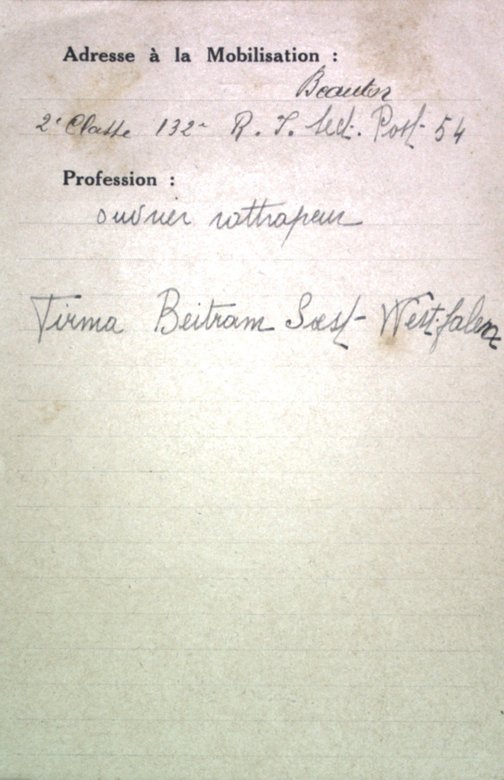 Adresse à la Mobilisation :
2e Classe 132e R. I. Sect. Post 54
Profession :
ouvrier rattrapeur
Firma Beitram Soest Westfalen